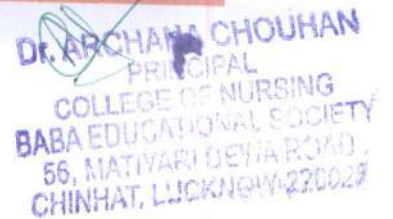 Dr. ARCHANA CHOUHAN
PRINCIPAL
COLLEGE OF NURSING
BABA EDUCATIONAL SOCIETY
56, MATIYARI DEWA ROAD,
CHINHAT, LUCKNOW-220029